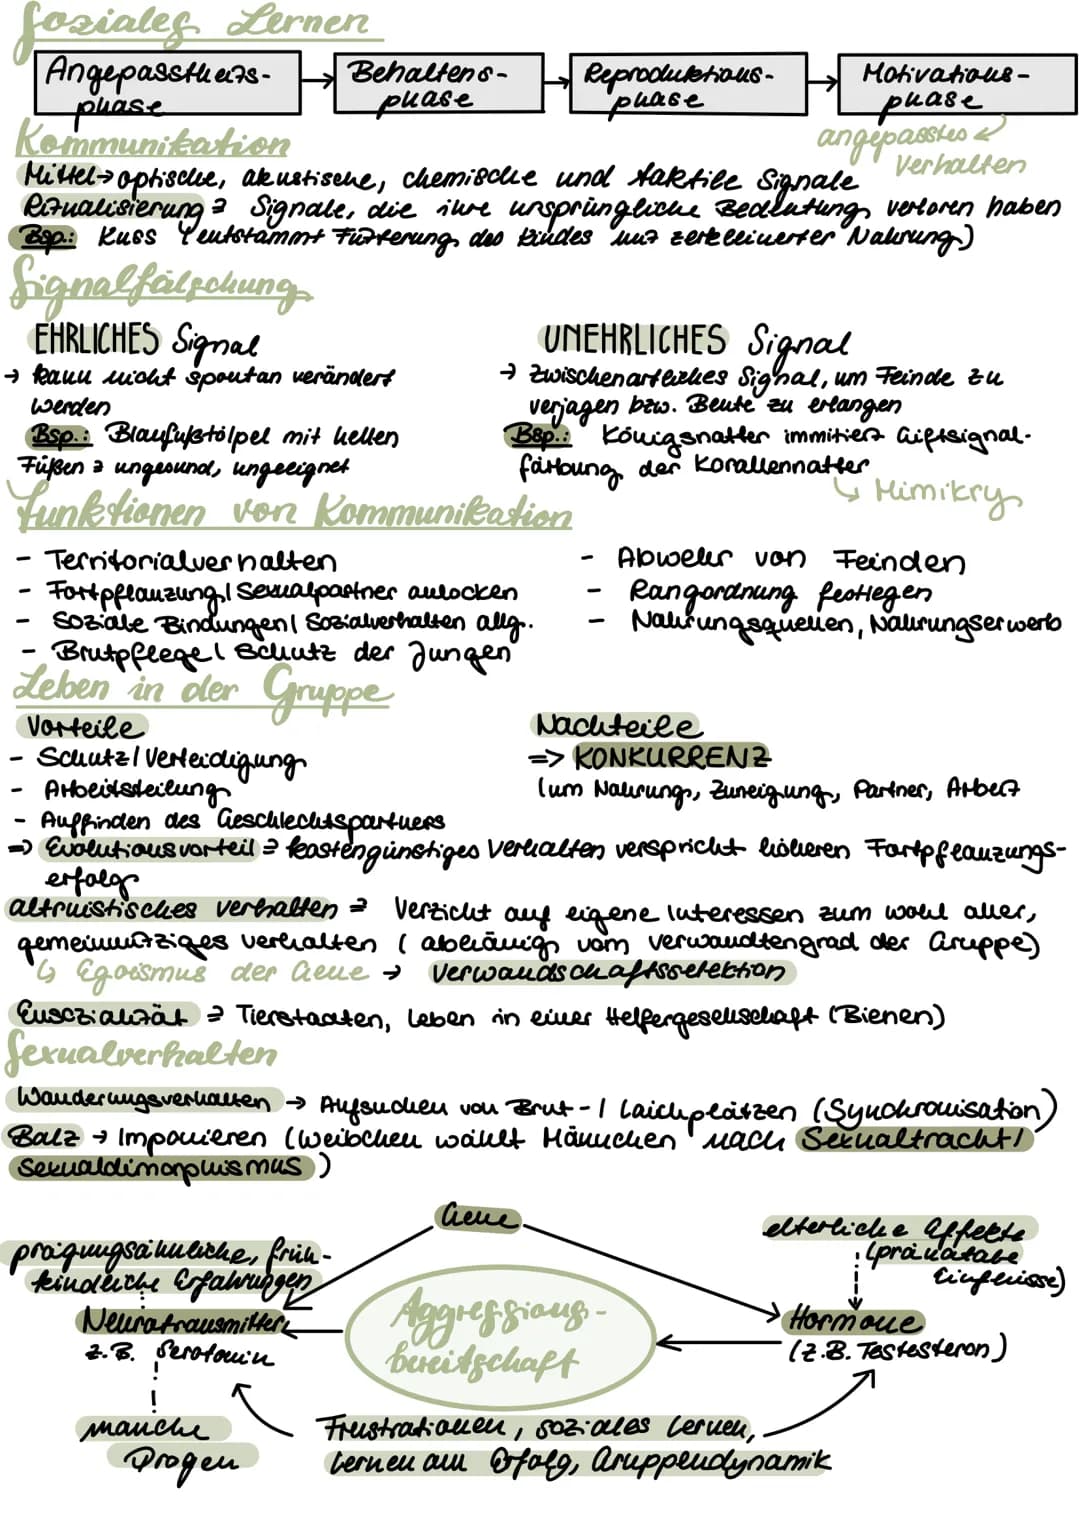 Soziales Lernen
Angepasstheits-
phase
Behaltens-
phase
Reproduktions-
phase
Motivations-
phase
angepasstes
Verhalten
Kommunikation
Mittel → optische, akustische, chemische und taktile Signale
Ritualisierung ≙ Signale, die ihre ursprüngliche Bedeutung verloren haben
Bsp.: Kuss (entstammt Fütterung des Kindes mit zerkleinerter Nahrung)
Signalfälschung
EHRLICHES Signal
→ kann nicht spontan verändert
werden
Bsp.: Blaufußtölpel mit hellen
Füßen ≙ ungesund, ungeeignet
UNEHRLICHES Signal
→ zwischenartliches Signal, um Feinde zu
verjagen bzw. Beute zu erlangen
Bsp.: Königsnatter immitiert Giftsignal-
färbung der Korallennatter
↳ Mimikry
Funktionen von Kommunikation
- Territorialverhalten
- Fortpflanzung / Sexualpartner anlocken
- Soziale Bindungen / Sozialverhalten allg.
- Brutpflege / Schutz der Jungen
- Abwehr von Feinden
- Rangordnung festlegen
- Nahrungsquellen, Nahrungserwerb
Leben in der Gruppe
Vorteile
- Schutz / Verteidigung
- Arbeitsteilung
- Auffinden des Geschlechtspartners
Nachteile
=> KONKURRENZ
(um Nahrung, Zuneigung, Partner, Arbeit
=> Evolutionsvorteil ≙ kostengünstiges Verhalten verspricht höheren Fortpflanzungs-
erfolg
altruistisches Verhalten ≙ Verzicht auf eigene Interessen zum wohl aller,
gemeinnütziges verhalten (abhängig vom verwandtengrad der Gruppe)
↳ Egoismus der Gene → Verwandschaftsselektion
Eusczialität ≙ Tierstaaten, Leben in einer Helfergesellschaft (Bienen)
Sexualverhalten
Wanderungsverhalten → Aufsuchen von Brut- / Laichplätzen (Synchronisation)
Balz → Imponieren (Weibchen wählt Männchen nach Sexualtracht/
Sexualdimorphismus)
Gene
prägungsähnliche, früh-
kindliche Erfahrungen
elterliche Affekte
(pränatale
Einflüsse)
Neurotransmitter
z.B. Serotonin
Aggressions-
bereitschaft
Hormone
(z.B. Testesteron)
manche
Drogen
Frustrationen, soziales Lernen,
Lernen am Erfolg, Gruppendynamik